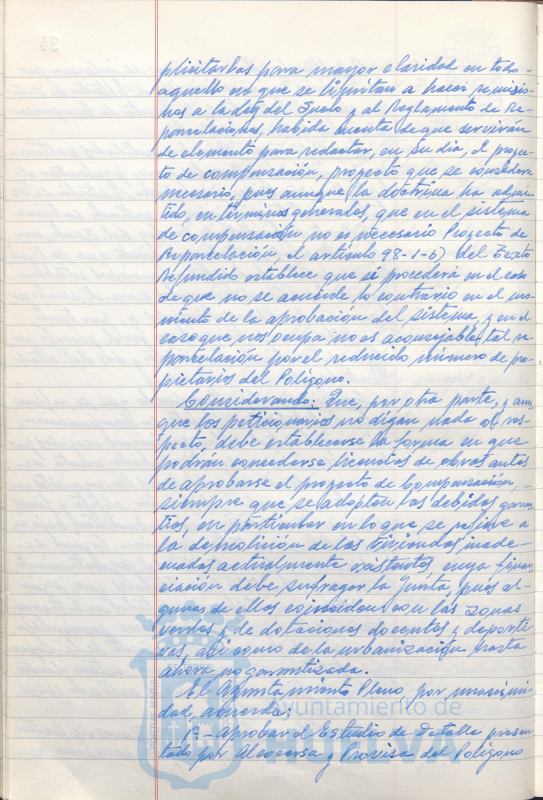 plicitarlas para mayor claridad en todo
aquello en que se limitan a hacer remisio-
nes a la Ley del Suelo y al Reglamento de Re-
parcelaciones, habida cuenta de que servirán
de elemento para redactar, en su día, el proyec-
to de compensación, proyecto que se considera
necesario, pues aunque la doctrina ha admi-
tido, en términos generales, que en el sistema
de compensación no es necesario Proyecto de
Reparcelación, el artículo 98-1-b) del Texto
Refundido establece que sí procederá en el caso
de que no se acuerde lo contrario en el mo-
mento de la aprobación del sistema, y en el
caso que nos ocupa no es aconsejable tal re-
parcelación por el reducido número de pro-
pietarios del Polígono.
Considerando: Que, por otra parte, y aun-
que los peticionarios no digan nada al res-
pecto, debe establecerse la forma en que
podrán concederse licencias de obras antes
de aprobarse el proyecto de Compensación,
siempre que se adopten las debidas garan-
tías, en particular en lo que se refiere a
la demolición de las viviendas inade-
cuadas actualmente existentes cuya finan-
ciación debe sufragar la Junta, pues al-
gunas de ellas coinciden con las zonas
verdes y de dotaciones docentes y deporti-
vas, así como de la urbanización hasta
ahora no garantizada.
El Ayuntamiento Pleno, por unanimi-
dad, acuerda:
1º.- Aprobar el Estudio de Detalle presen-
tado por y Provisa del Polígono
Ayuntamiento de
HUELVA